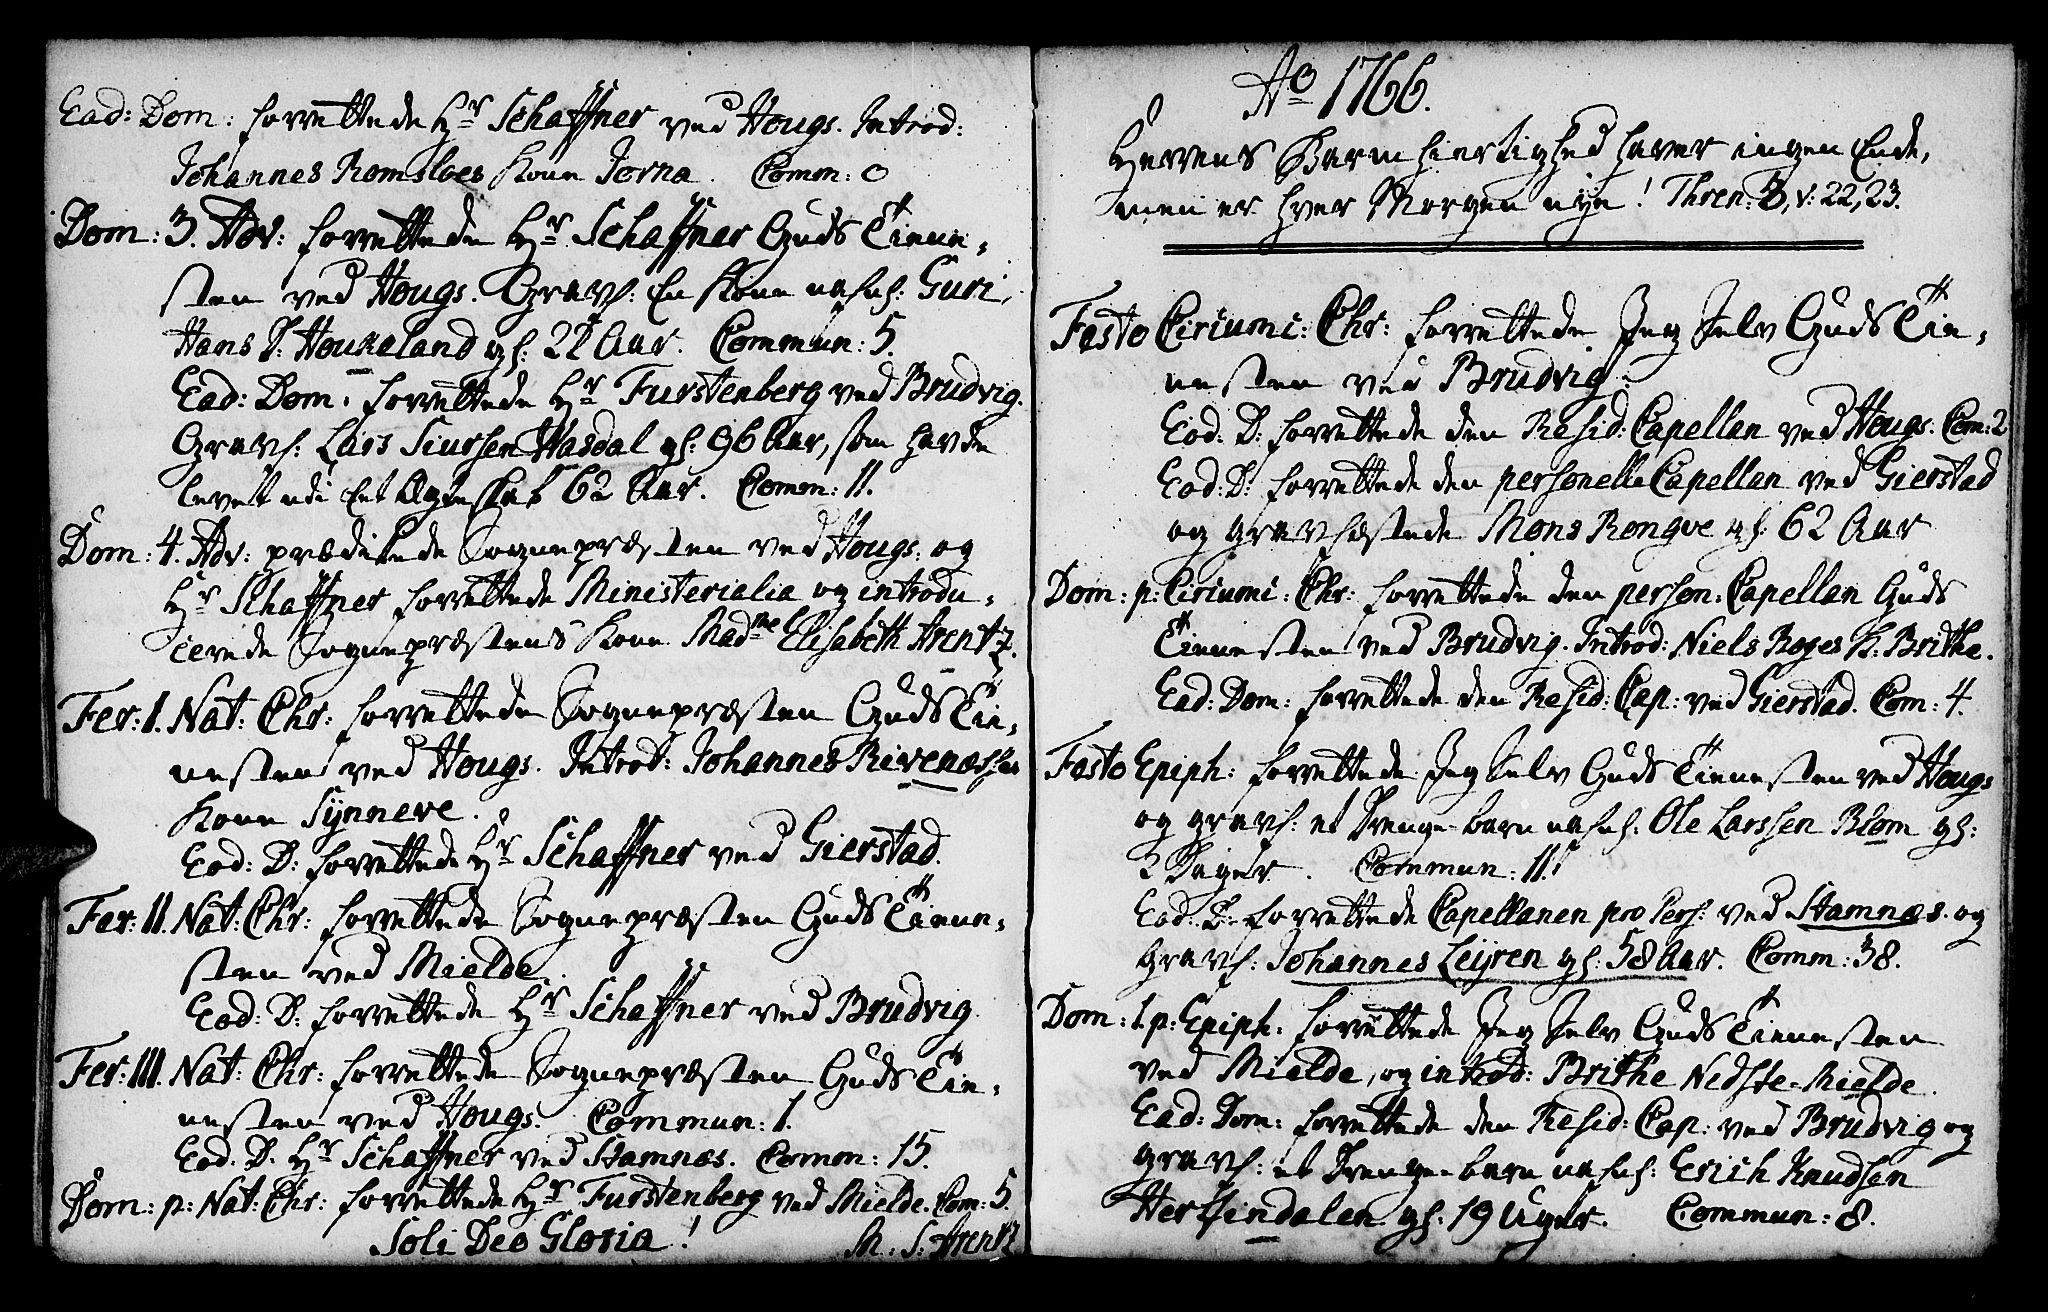 Ead: Dom: forrettede Hr Schaffner ved Hougs. Introd:
Johannes Romsloes Kone Jorna. Comm: 0
Dom: 3. Adv: forrettede Hr Schaffner Guds Tienn-
sten ved Hougs. Gravf: En Kone nafnl: Guri
Hans D: Houkeland gl: 22 Aar. Commun: 5.
Ead: Dom: forrettede Hr Furstenberg ved Brudvig.
Gravf: Lars Siursen Wasdal gl: 96 Aar, som havde
levet udi Et Ægteskab 62 Aar. Comm: 11.
Dom: 4. Adv: prædikede Sognepræsten ved Hougs, og
Hr Schaffner forrettede Ministerialia og introdu-
cerede Sognepræstens Kone Madme Elisabeth Arentz.
Fer: I. Nat: Chr: forrettede Sognepræsten Guds Tie-
nesten ved Hougs. Introd: Johannes Rivenæsses
Kone Synneve.
Eod: D: forrettede Hr Schaffner ved Gierstad.
Fer: II. Nat: Chr: forrettede Sognepræsten Guds Tienn-
sten ved Mielde.
Eod: D: forrettede Hr Schaffner ved Brudvig.
Fer: III. Nat: Chr: forrettede Sognepræsten Guds Tie-
nesten ved Hougs. Commun: 1.
Eod. D. Hr Schaffner ved Stamnæs. Comm: 15.
Dom: p: Nat: Chr: forrettede Hr Furstenberg ved Mielde. Com: 5.
Soli Deo Gloria! M: S: Arentz
Ao 1766.
Herrens Barmhiertighed haver ingen Ende,
men er hver Morgen nye! Thren: 3, v: 22, 23.
Festo Circumci: Chr: forrettede Jeg Selv Guds Tie-
nesten ved Brudvig.
Eod: D: forrettede den Resid: Capellan ved Hougs. Com: 2
Eod: D: forrettede den personelle Capellan ved Gierstad
og gravfæstede Mons Rongve gl: 62 Aar
Dom: p: Circumci: Chr: forrettede den person: Capellan Guds
Tienesten ved Brudvig. Introd: Niels Roges K. Brithe.
Ead: Dom: forrettede den Resid: Cap: ved Gierstad. Com: 4.
Festo Epiph: forrettede Jeg Selv Guds Tienesten ved Hougs
og gravf: et Drenge-barn nafnl: Ole Larssen Blom gl:
2 Dager. Commun: 11.
Eod: D: forrettede Capellanen pro Pers: ved Stamnæs. og
Gravf: Johannes Leyren gl: 58 Aar. Comm: 38.
Dom: 1. p: Epiph: forrettede Jeg Selv Guds Tienesten
ved Mielde, og introd: Brithe Nedste-Mielde.
Ead: Dom: forrettede den Resid: Cap: ved Brudvig og
gravf: et Drenge-barn nafnl: Erich Knudsen
Herfindalen gl: 19 Uger. Commun: 8.